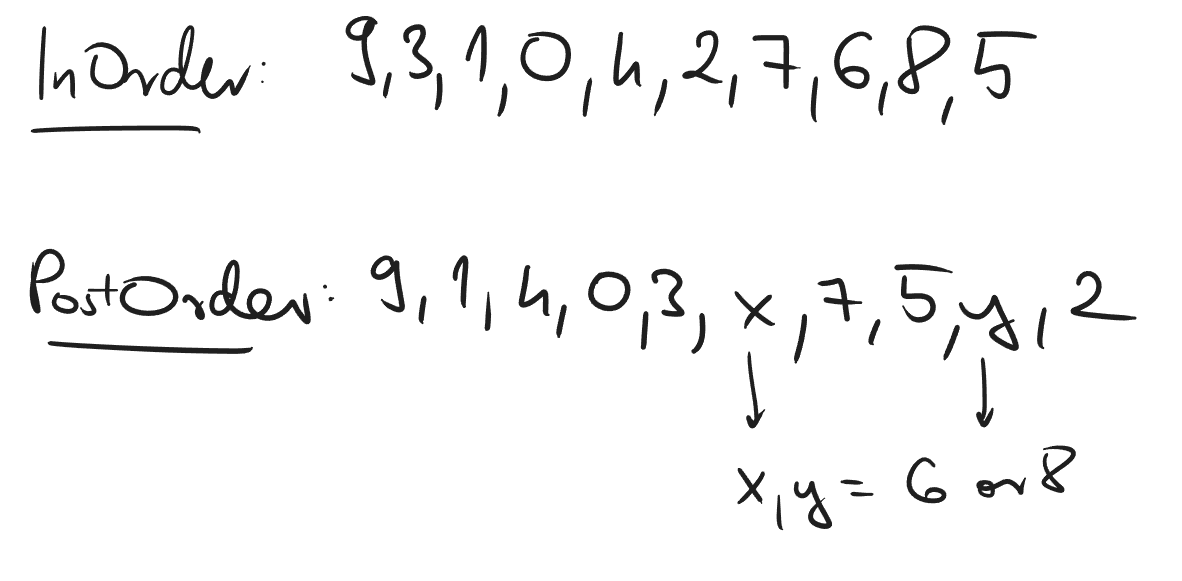 InOrder: 9,3,1,0,4,2,7,6,8,5
PostOrder: 9,1,4,0,3,x,7,5,y,2
x,y = 6 or 8